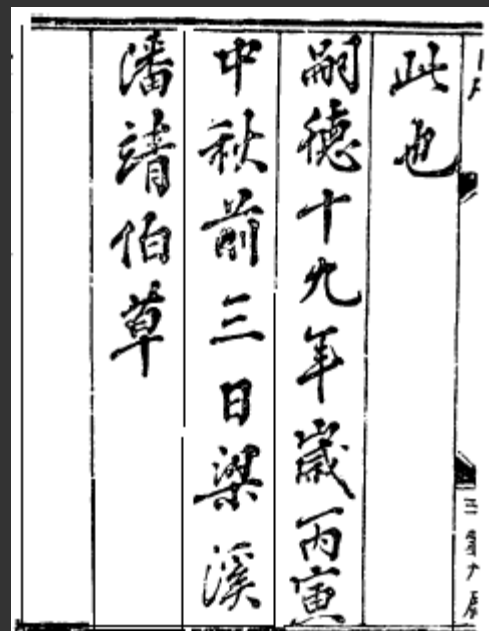 此也
嗣德十九年歲丙寅
中秋前三日梁溪
潘靖伯草